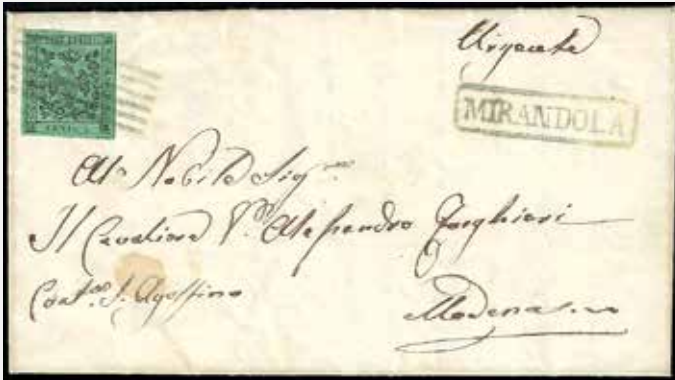 Urgente
MIRANDOLA
Al Nobile Sig.re
Il Cavaliere Alessandro
Cont.a S. Agostino
Modena